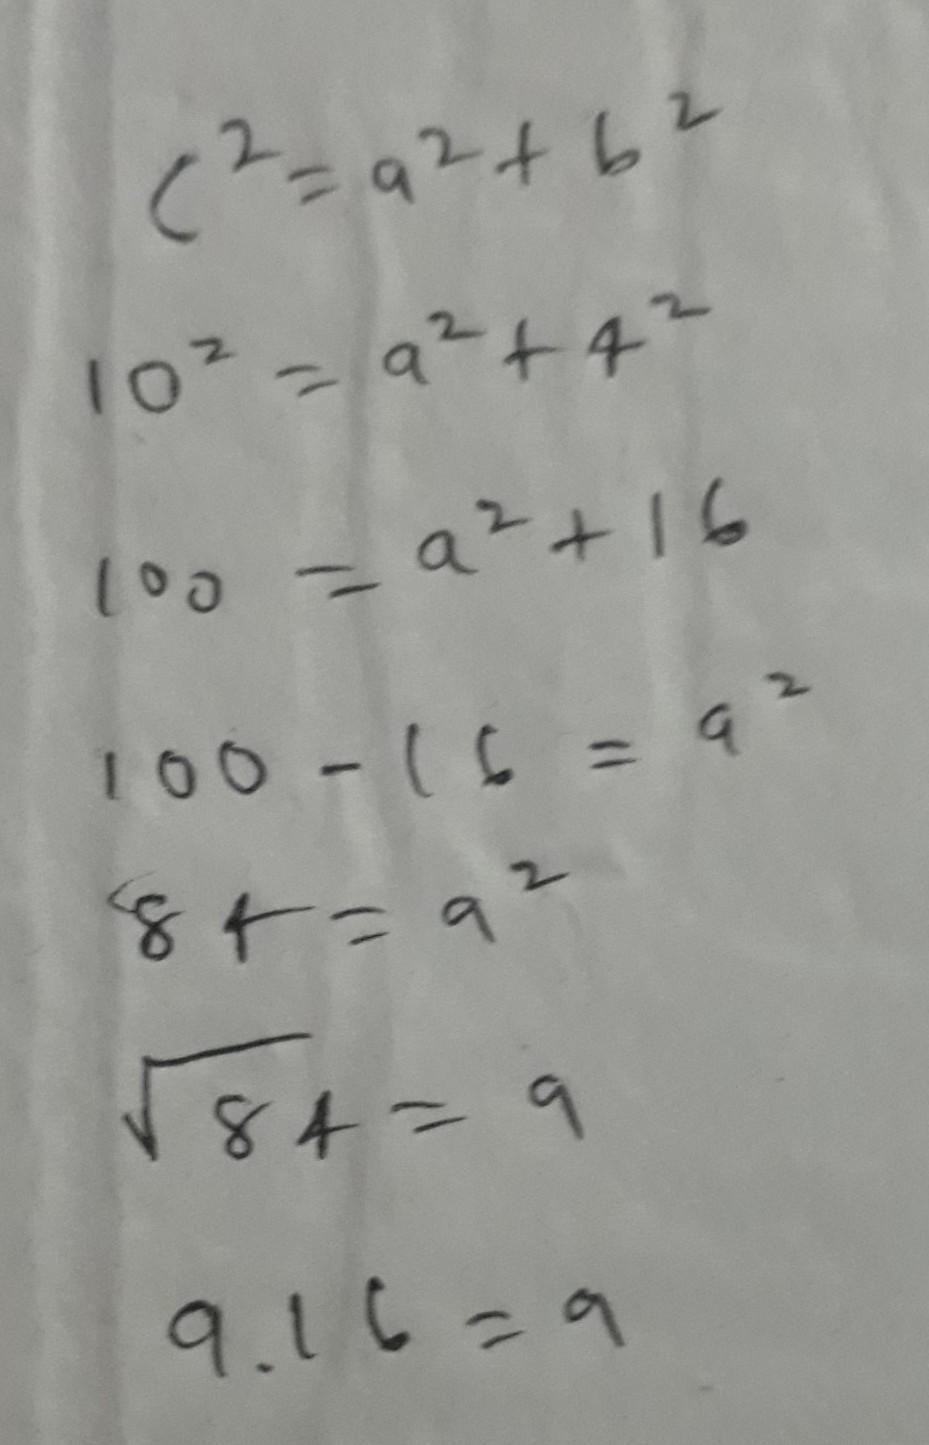 c² = a² + b²
10² = a² + 4²
100 = a² + 16
100 - 16 = a²
84 = a²
√84 = a
9.16 = a